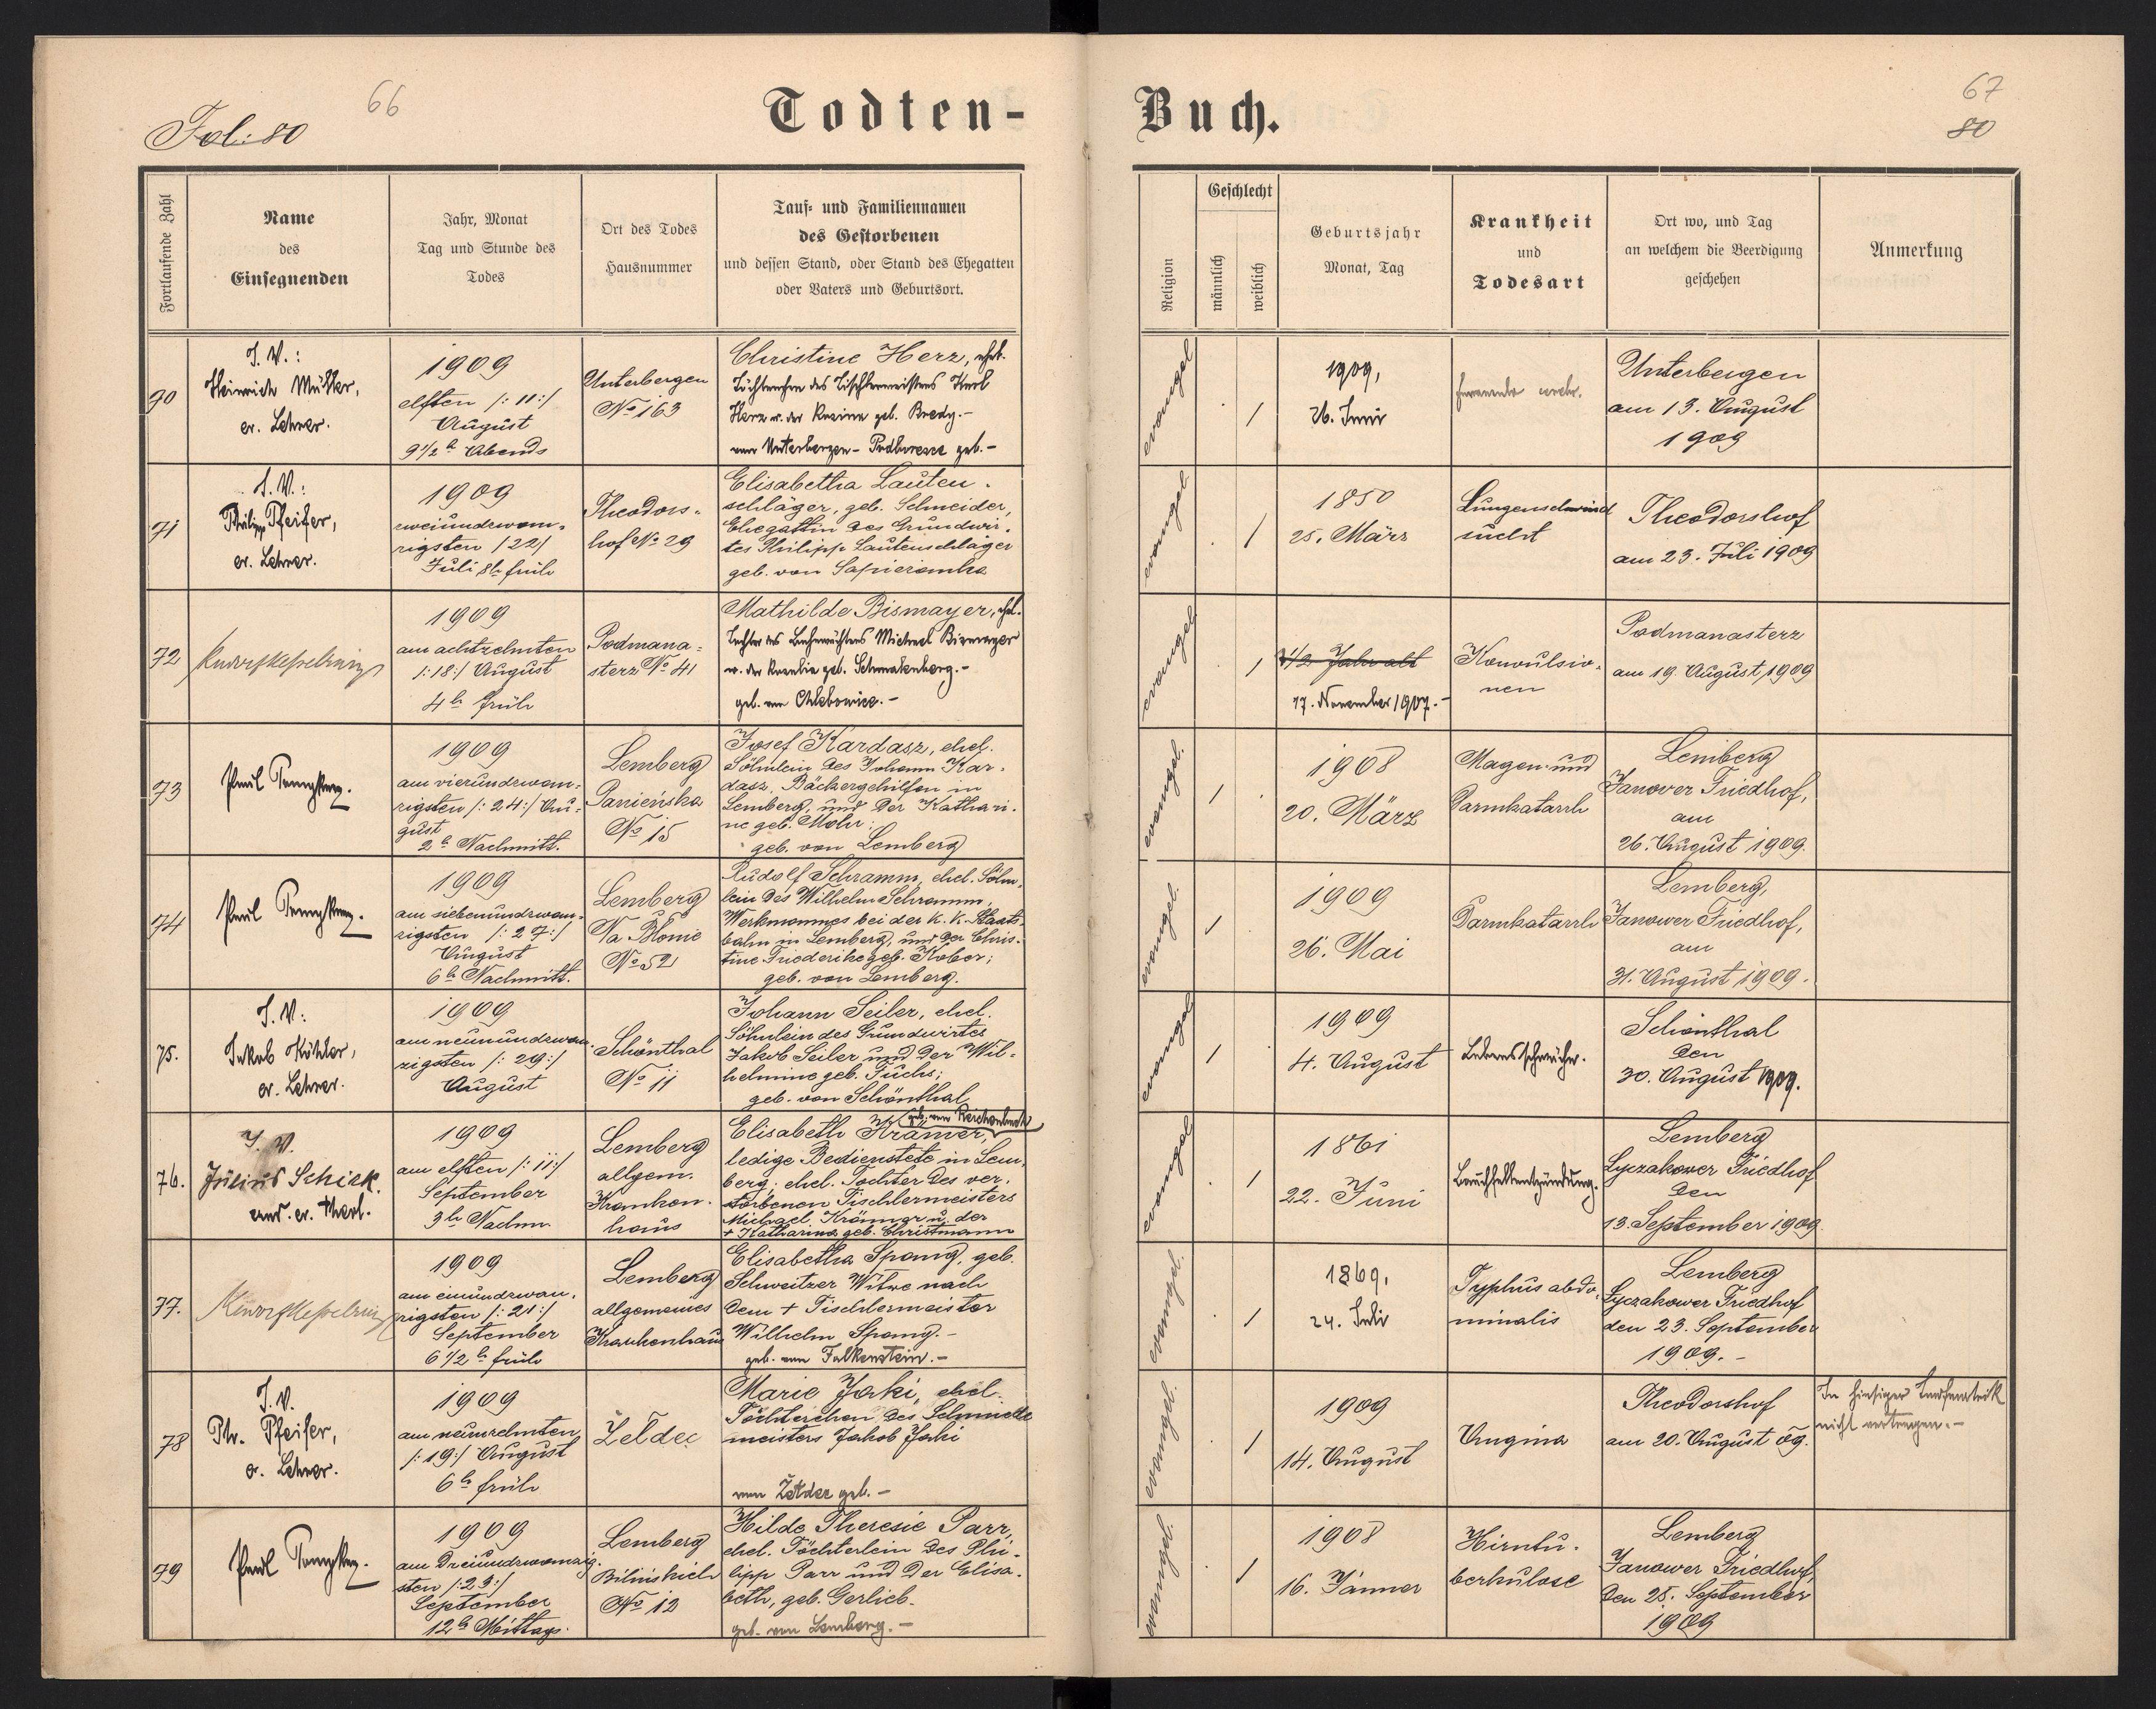 66
Fol: 80
Todten-
Fortlaufende Zahl
Name
des
Einsegnenden
Jahr, Monat
Tag und Stunde des
Todes
Ort des Todes
Hausnummer
Tauf- und Familiennamen
des Gestorbenen
und dessen Stand, oder Stand des Ehegatten
oder Vaters und Geburtsort.
70
I. V.:
Heinrich Müller,
ev. Lehrer.
1909
elften /: 11:/
August
9 1/2 h Abends
Unterbergen
No 163
Christine Herz, ehel.
Töchterchen des Tischlermeisters Karl
Herz u. der Rosina geb. Bredy.-
von Unterbergen- geb.-
71
I. V.:
Philipp Pfeifer,
ev. Lehrer.
1909
zweiundzwan-
zigsten /22/
Juli 8h früh
Theodors-
hof No 29
Elisabetha Lauten-
schläger, geb. Schneider,
Ehegattin des Grundwir-
tes Philipp Lautenschläger
geb. von Sapiezanka
72
1909
am achtzehnten
/:18:/ August
4 h früh
Podmana-
sterz No 41
Mathilde Bismayer, ehel.
Tochter des Bahnwächters Michael Bismayer
u. der Rosalia geb. Schmalenberg.-
geb. von Chlebowice.-
73
Paul
1909
am vierundzwan-
zigsten /: 24:/ Au-
gust
2 h Nachmitt.
Lemberg
Panieńska
No 15
Josef Kardasz, ehel.
Söhnlein des Johann Kar-
dasz, Bäckergehilfen in
Lemberg, und der Kathari-
ne geb. Mohr;
geb. von Lemberg
74
Paul
1909
am siebenundzwan-
zigsten /: 27:/
August
6 h Nachmitt.
Lemberg
Na Błonie
No 52
Rudolf Schramm, ehel. Söhn-
lein des Wilhelm Schramm,
Werkmannes bei der k. k. Staats-
bahn in Lemberg, und der Chris-
tine Friederike geb. Kober;
geb. von Lemberg.
75.
I. V.:
Jakob Köhler,
ev. Lehrer.
1909
am neunundzwan-
zigsten /: 29:/
August
Schönthal
No 11
Johann Seiler, ehel.
Söhnlein des Grundwirtes
Jakob Seiler und der Wil-
helmine geb. Fuchs;
geb. von Schönthal
76.
I. V.
Julius Schick.
cand. ev. theol.
1909
am elften /: 11:/
September
3 h Nachm
Lemberg
allgem.
Kranken-
haus
geb. von Reichenbach
Elisabeth Krämer,
ledige Bedienstete in Lem-
berg; ehel. Tochter des ver-
storbenen Tischlermeisters
Michael Krämer u. der
+ Katharina geb. Christmann
77.
1909
am einundzwan-
zigsten /: 21:/
September
6 1/2 h früh
Lemberg
allgemeines
Krankenhaus
Elisabetha Spang, geb.
Schweitzer Witwe nach
dem + Tischlermeister
Wilhelm Spang.-
geb. von Falkenstein.-
78
I. V.
Ph. Pfeifer,
ev. Lehrer.
1909
am neunzehnten
/: 19:/ August
6 h früh
Żeldec
Marie Jaki, ehel.
Töchterchen des Schmiede
meisters Jakob Jaki
von Żełdec geb.-
79
Paul
1909
am dreiundzwanzig-
sten /:23:/
September
12 h Mittags.
Lemberg
Bilińskich
No 12
Hilde Theresie Parr,
ehel. Töchterlein des Phi-
lipp Parr und der Elisa-
beth, geb. Gerlieb.
geb. von Lemberg.-
Buch.
67
80
Religion
Geschlecht
männlich
weiblich
Geburtsjahr
Monat, Tag
Krankheit
und
Todesart
Ort wo, und Tag
an welchem die Beerdigung
geschehen
Anmerkung
evangel
/
1909,
26. Juni
Unterbergen
am 13. August
1909
evangel.
/
1850
25. März
Lungenschwind
sucht
Theodorshof
am 23. Juli 1909
evangel.
/
1 1/2 Jahr alt
17. November 1907.-
Konvulsio-
nen
Podmanasterz
am 19. August 1909
evangel.
/
1908
20. März
Magen- und
Darmkatarrh
Lemberg
Janower Friedhof,
am
26. August 1909.
evangel.
/
1909
26. Mai
Darmkatarrh
Lemberg,
Janower Friedhof,
am
31. August 1909.
evangel
/
1909
4. August
Lebensschwäche.
Schönthal
den
30. August 1909.
evangel
/
1861
22. Juni
Bauchfellentzündung.
Lemberg
Lyczakower Friedhof
den
13. September 1909.
evangel.
/
1869,
24. Juli
Typhus abdo-
minalis
Lemberg
Lyczakower Friedhof
den 23. September
1909.-
evangel.
/
1909
14. August
Angina
Theodorshof
am 20. August 09.
In hiesiger Taufmatrik
nicht vertragen.-
evangel.
/
1908
16. Jänner
Hirntu-
berkulose
Lemberg
Janower Friedhof
den 25. September
1909